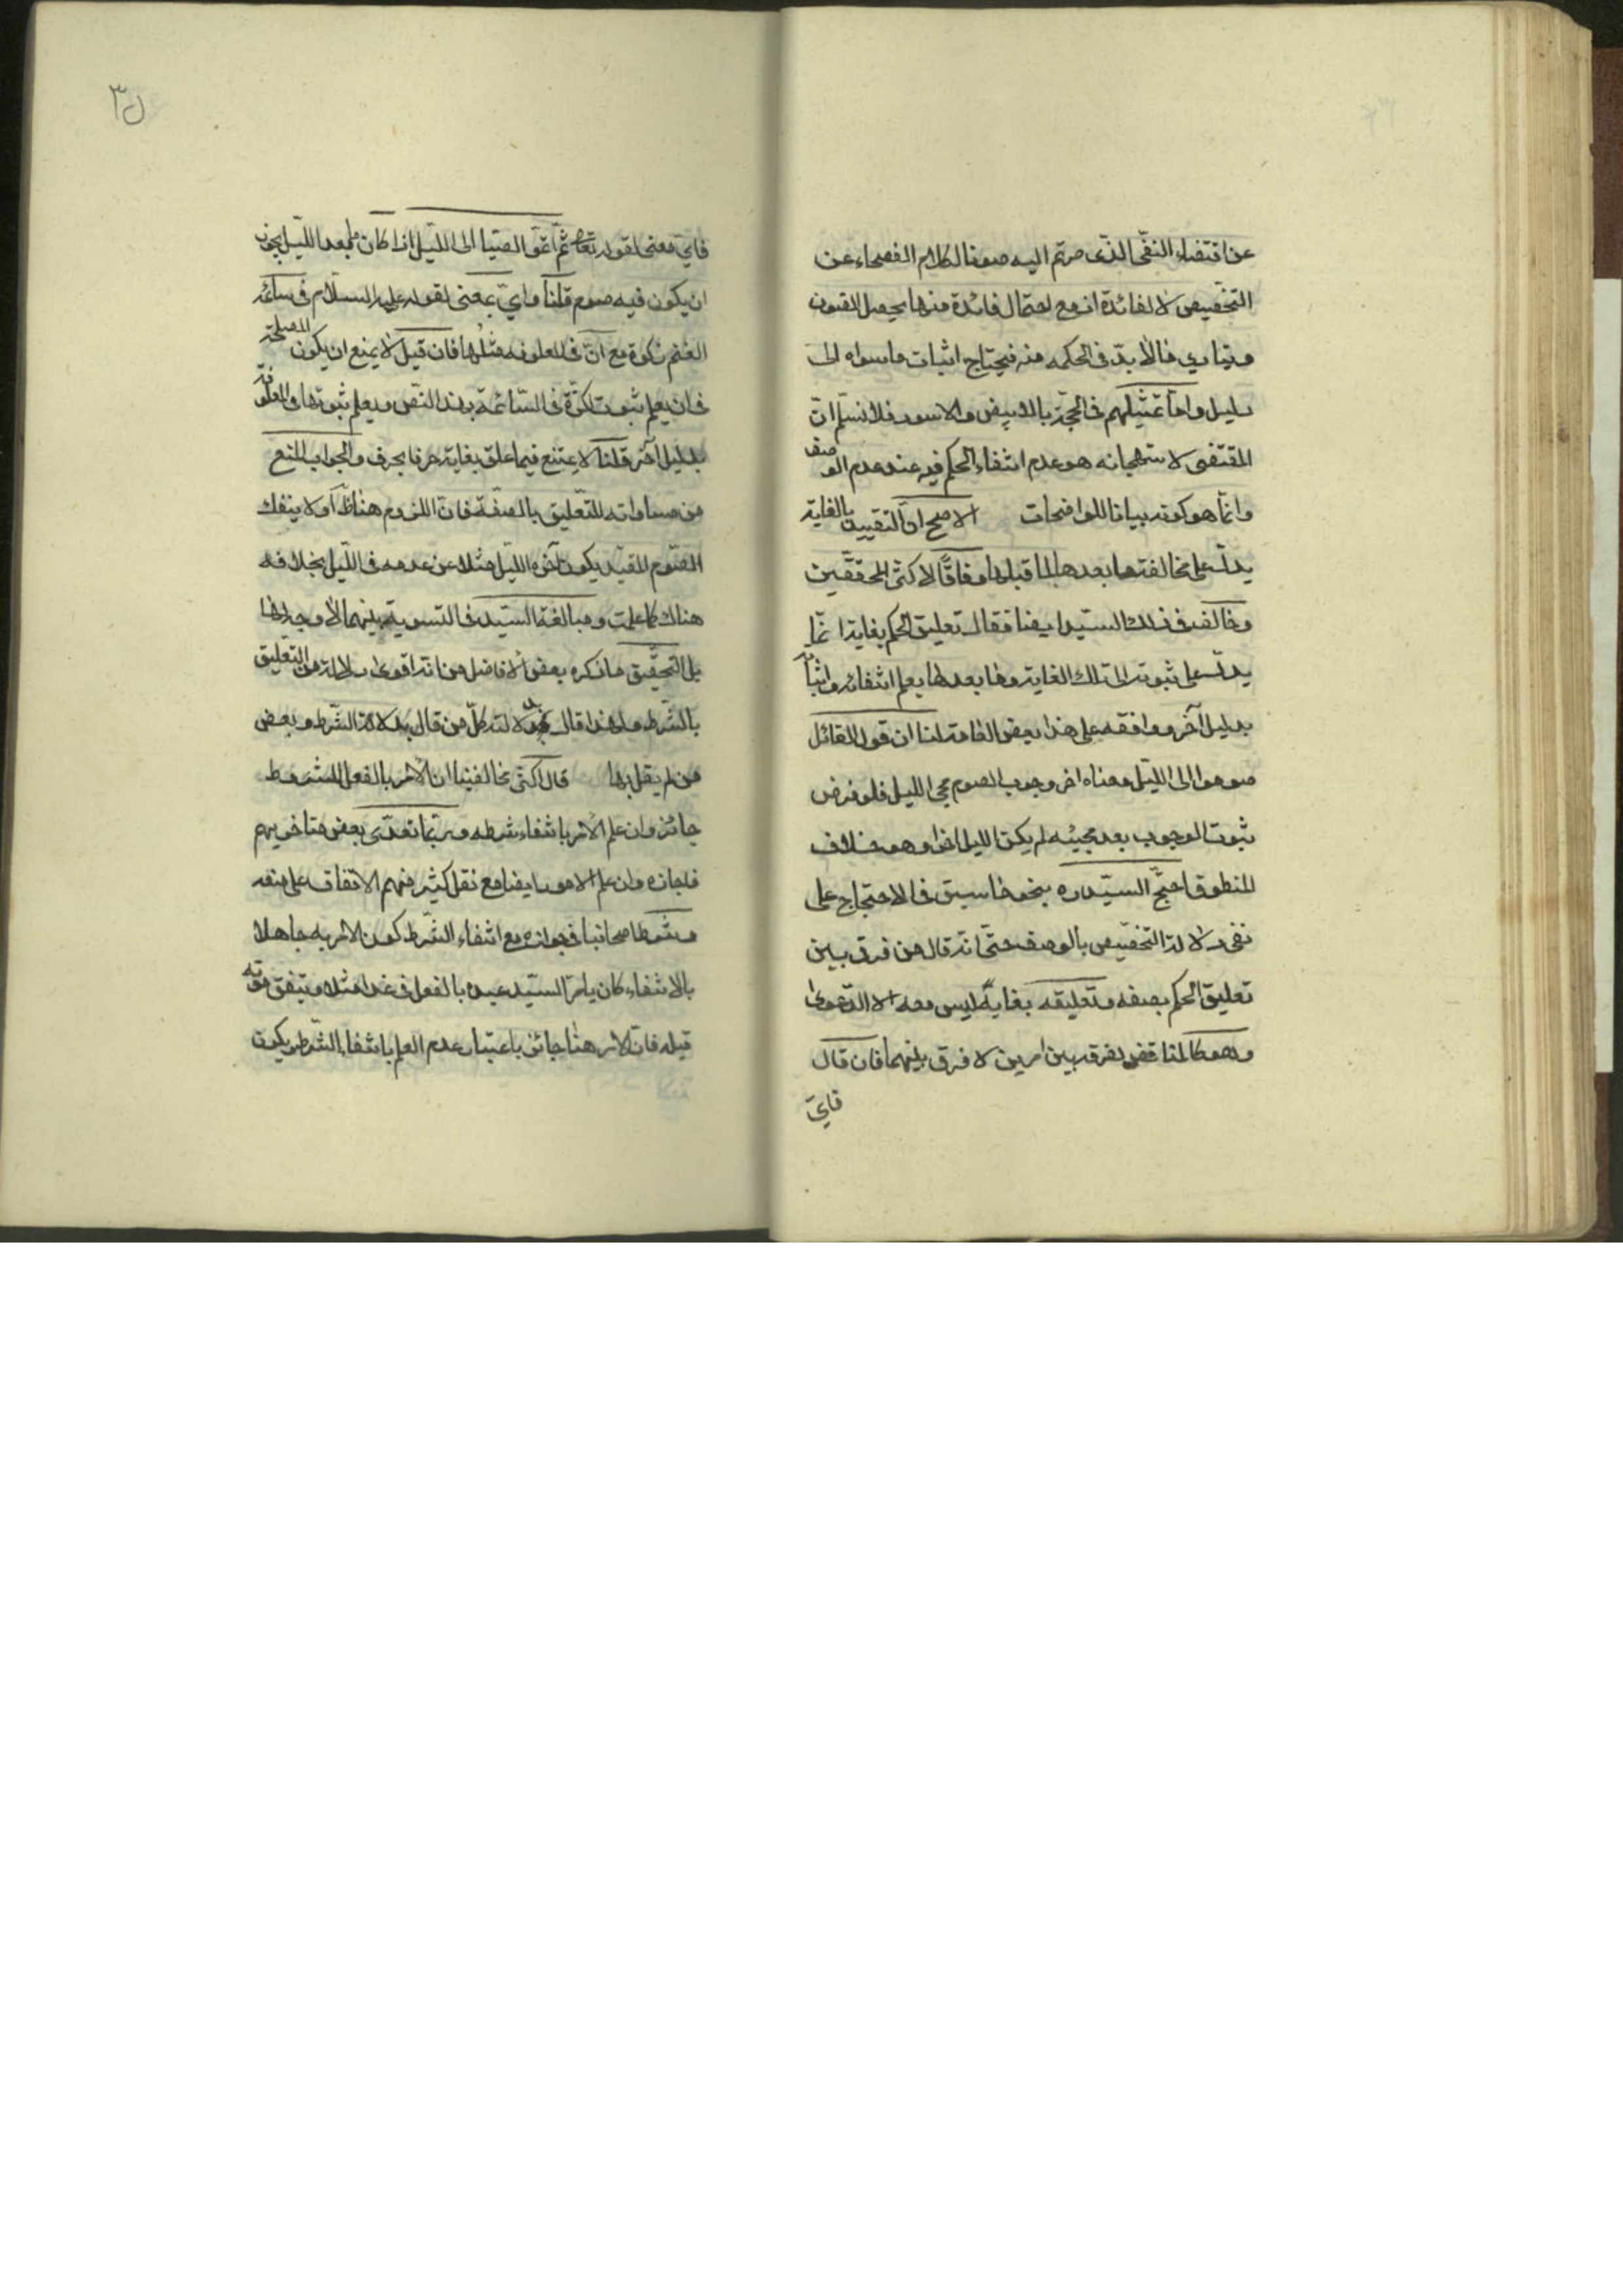 عن اقتضاء النفى الذى صرتم اليه صونا لكلام الفصحاء عن
التخصيص لا لفائدة اذ مع احتمال فائدة منها يحصل الصون
ويتادى ما لا بد فى الحكمه منه فيحتاج اثبات ما سواه الى
دليل واما تمثيلهم فى الحجة بالابيض والاسود فلا نسلم ان
المقتضى لاستهجانه هو عدم انتفاء الحكم فيه عند عدم الوصف
وانما هو كونه بيانا للواضحات الاصح ان التقييد بالغاية
يدل على مخالفة ما بعدها لما قبلها وفاقا لاكثر المحققين
وخالف فى ذلك السيد ايضا فقال تعليق الحكم بغاية انما
يدل على ثبوته الى تلك الغاية وما بعدها يعلم انتفائه او اثباته
بدليل اخر ووافقه على هذا بعض العامة لنا ان قول القائل
صوموا الى الليل معناه اخر وجوب الصوم مجئ الليل فلو فرض
ثبوت الوجوب بعد مجيئه لم يكن الليل اخرا وهو خلاف
المنطوق احتج السيد ره بنحو ما سبق فى الاحتجاج على
نفى دلالة التخصيص بالوصف حتى انه قال من فرق بين
تعليق الحكم بصفه وتعليقه بغاية ليس معه الا الدعوى
وهو كالمناقض لفرقه بين امرين لا فرق بينهما فان قال
فاى
٣٥
فاى معنى لقوله تعالى ثم اتموا الصيام الى الليل اذا كان ما بعد الليل يجوز
ان يكون فيه صوم قلنا واى معنى لقوله عليه السلام فى سائمة
الغنم زكوة مع ان فى المعلوفه مثلها فان قيل لا يمنع ان يكون المصلحة
فى ان يعلم ثبوت الزكوة فى السائمة بهذا النص ويعلم ثبوتها فى المعلوفة
بدليل اخر قلنا لا يمتنع فيما علق بغاية حرفا بحرف والجواب المنع
من مساواته للتعليق بالصفة فان اللزوم هنا ظاهر اذ لا ينفك
الصوم المقيد بكون اخره الليل مثلا عن عدمه فى الليل بخلافه
هناك كما علمت ومبالغة السيد فى التسوية بينهما لا وجه لها
بل التحقيق ما ذكره بعض الافاضل من انه اقوى دلالة من التعليق
بالشرط ولهذا قال بدلالته كل من قال بدلالة الشرط وبعض
من لم يقل بها قال اكثر مخالفينا ان الامر بالفعل المشروط
جائز وان علم الامر انتفاء شرطه وربما تعدى بعض متاخريهم
فاجازه وان علم المامور ايضا مع نقل كثير منهم الاتفاق على منعه
وشرط اصحابنا فى جوازه مع انتفاء الشرط كون الامر به جاهلا
بالانتفاء كان يامر السيد عبده بالفعل فى غد مثلا ويتفق موته
قبله فان الامر هنا جائز باعتبار عدم العلم بانتفاء الشرط ويكون